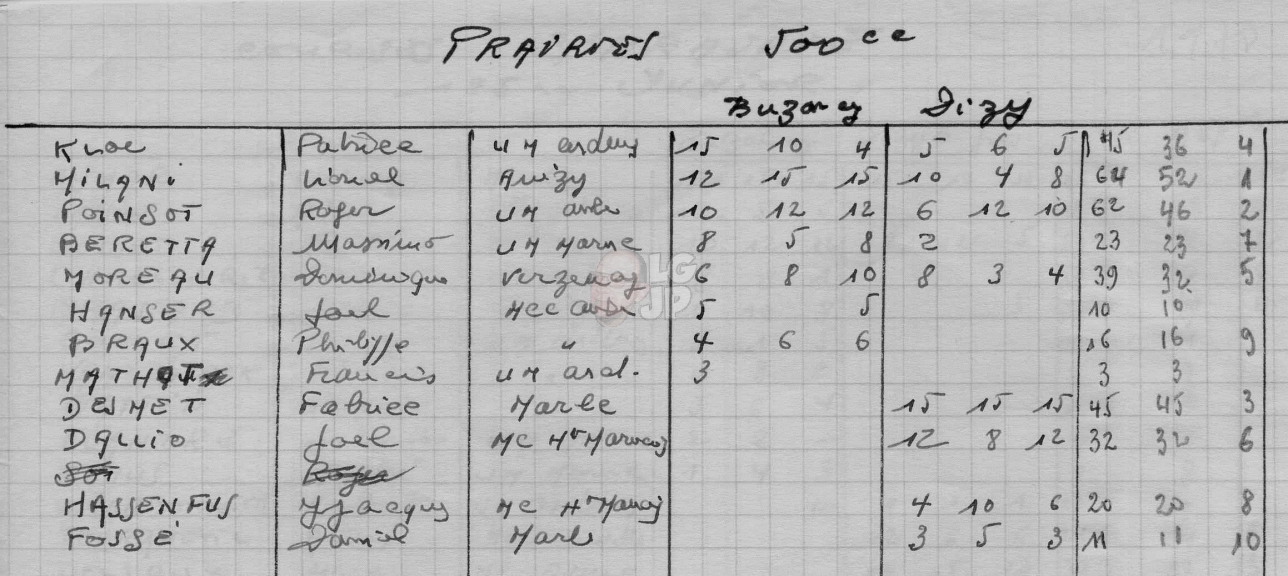 PRAIRIES 500 cc
Buzancy Dizy
KLOC Patrice UM ardenn 15 10 4 5 6 5 45 36 4
MILANI Lionel Avizy 12 15 15 10 4 8 64 52 1
POINSOT Roger UM aube 10 12 12 6 12 10 62 46 2
BERETTA Massimo UM Marne 8 5 8 2 23 23 7
MOREAU Dominique Verzenay 6 8 10 8 3 4 39 32 5
HANSER Joel MCC 5 5 10 10
BRAUX Philippe " 4 6 6 16 16 9
Francis UM ard. 3 3 3
DESMET Fabrice Marle 15 15 15 45 45 3
DALLIO Joel MC 12 8 12 32 32 6
HASSENFUS JJacques MC 4 10 6 20 20 8
FOSSÉ Daniel Marle 3 5 3 11 11 10
LG
JP